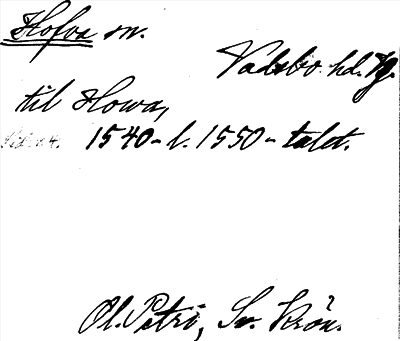 Hofva sn.
Vadsbo hd. Vg.
til Howa,
1540-t. 1550-talet.
Ol. Petri, Sv. Krön.